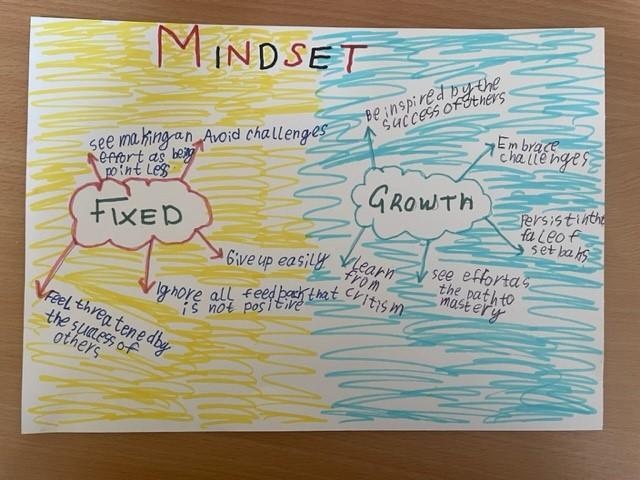 MINDSET
see making an
effort as being
pointless
Avoid challenges
FIXED
Give up easily
Ignore all feedback that
is not positive
Feel threatened by
the success of
others
Be inspired by the
success of others
Embrace
challenges
GROWTH
Persist in the
face of
setbaks
Learn
from
critism
see effort as
the path to
mastery